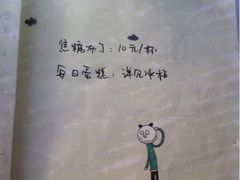 焦糖布丁：10元/杯
每日蛋糕：详见冰柜